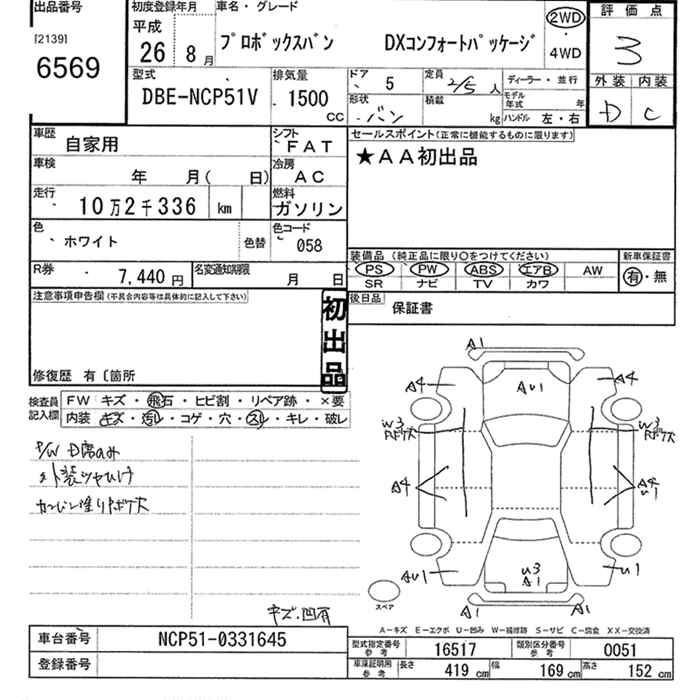 出品番号 初度登録年月 車名・グレード 評価点
[2139] 平成
6569 26 8月 プロボックスバン DXコンフォートパッケージ 2WD ・ 4WD 3
型式 排気量 ドア 5 定員 2/5 人 ディーラー・並行 外装 内装
DBE-NCP51V 1500 CC 形状 バン 積載 kg モデル年式 年 D C
ハンドル 左・右
車歴 自家用 シフト FAT セールスポイント(正常に機能するものに限ります)
車検 年 月( 日) 冷房 AC ★AA初出品
走行 10万2千336 km 燃料 ガソリン
色 ホワイト 色替 色コード 058
装備品 (純正品に限り〇をつけてください) 新車保証書
R券 7,440円 名変通知期限 月 日 PS PW ABS エアB AW 有・無
SR ナビ TV カワ
注意事項申告欄(不具合内容等は具体的に記入して下さい) 初出品 後日品 保証書
修復歴 有 〔箇所
検査員記入欄 FW キズ・飛石・ヒビ割・リペア跡・×要
内装 キズ・汚レ・コゲ・穴・スレ・キレ・破レ
P/W D席のみ
外装ツヤひけ
キズ・凹有
A1
A4 A4
AU1
W3 W3
A4 A4
U1
AU1 U3 U1
A1
スペア A1 A1
A−キズ E−エクボ U−凹み W−補修跡 S−サビ C−腐食 XX−交換済
車台番号 NCP51-0331645
登録番号
型式指定番号 参考 16517 類別区分番号 参考 0051
車庫証明用 参考 長さ 419 cm 幅 169 cm 高さ 152 cm